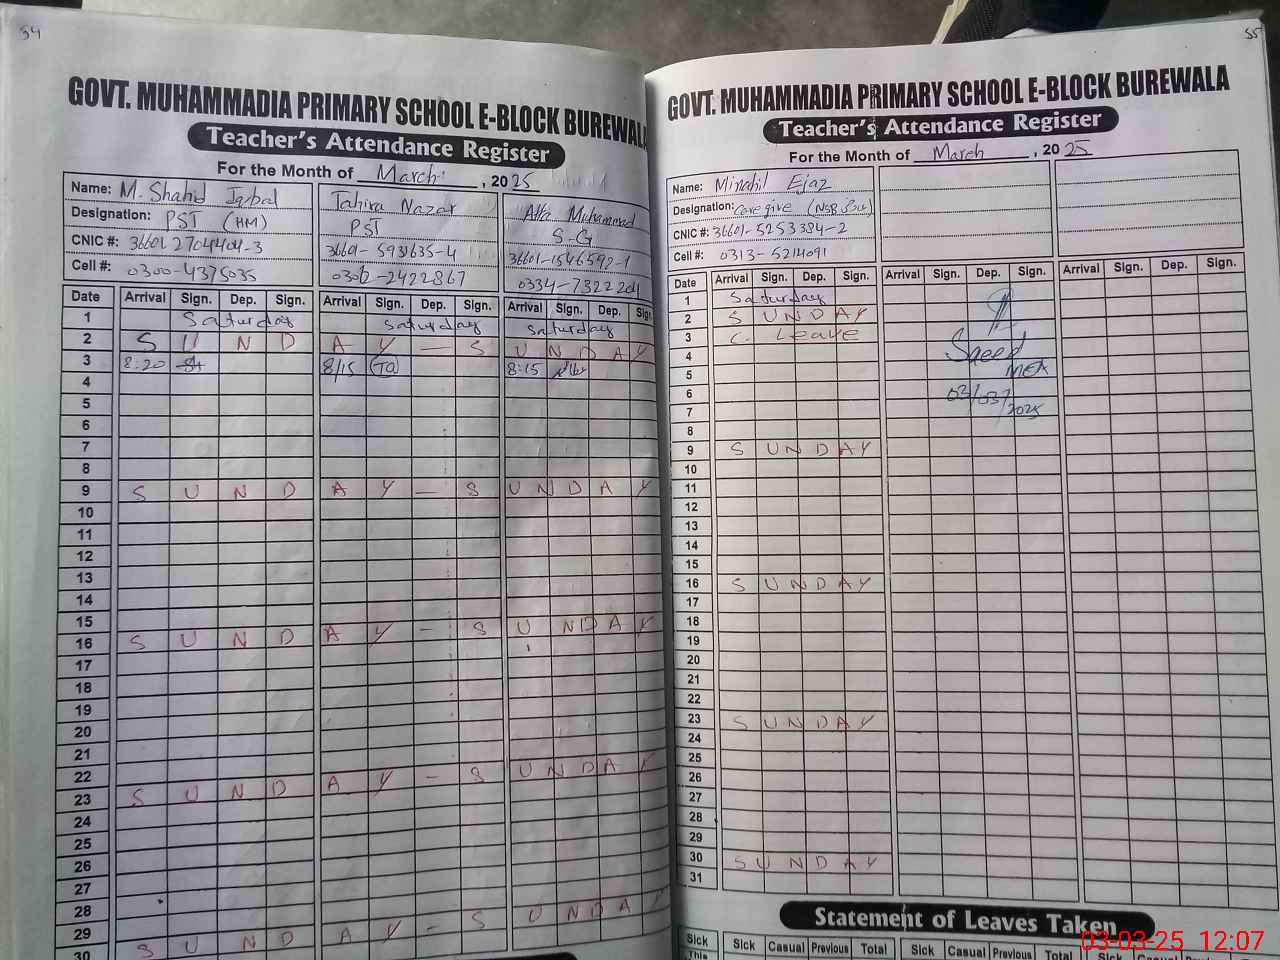 54
GOVT. MUHAMMADIA PRIMARY SCHOOL E-BLOCK BUREWALA
Teacher's Attendance Register
For the Month of March, 2025
Name: M. Shahid Iqbal Tahira Nazar Atta Muhammad
Designation: PST (HM) PST S-G
CNIC #: 36601 2704404-3 36601-5931635-4 36601-1546592-1
Cell #: 0300-4375035 0306-2422867 0334-7322204
Date Arrival Sign. Dep. Sign. Arrival Sign. Dep. Sign. Arrival Sign. Dep. Sign
1 Saturday Saturday Saturday
2 S U N D A Y — S U N D A Y
3 8:20 8/15 8:15
4
5
6
7
8
9 S U N D A Y — S U N D A Y
10
11
12
13
14
15
16 S U N D A Y — S U N D A Y
17
18
19
20
21
22
23 S U N D A Y — S U N D A Y
24
25
26
27
28
29
30 S U N D A Y — S U N D A
55
GOVT. MUHAMMADIA PRIMARY SCHOOL E-BLOCK BUREWALA
Teacher's Attendance Register
For the Month of March, 2025
Name: Minahil Ejaz
Designation: Care give
CNIC #: 36601-5253384-2
Cell #: 0313-5214091
Date Arrival Sign. Dep. Sign. Arrival Sign. Dep. Sign. Arrival Sign. Dep. Sign.
1 Saturday
2 S U N D A Y
3 C. Leave
4 Saeed
5 MEA
6 03/03/
7 2025
8
9 S U N D A Y
10
11
12
13
14
15
16 S U N D A Y
17
18
19
20
21
22
23 S U N D A Y
24
25
26
27
28
29
30 S U N D A Y
31
Statement of Leaves Taken
Sick Sick Casual Previous Total Sick Casual Previous Total Sick
This
03-03-25 12:07